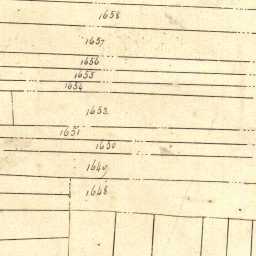 1658
1657
1656
1655
1654
1652
1651
1650
1649
1648